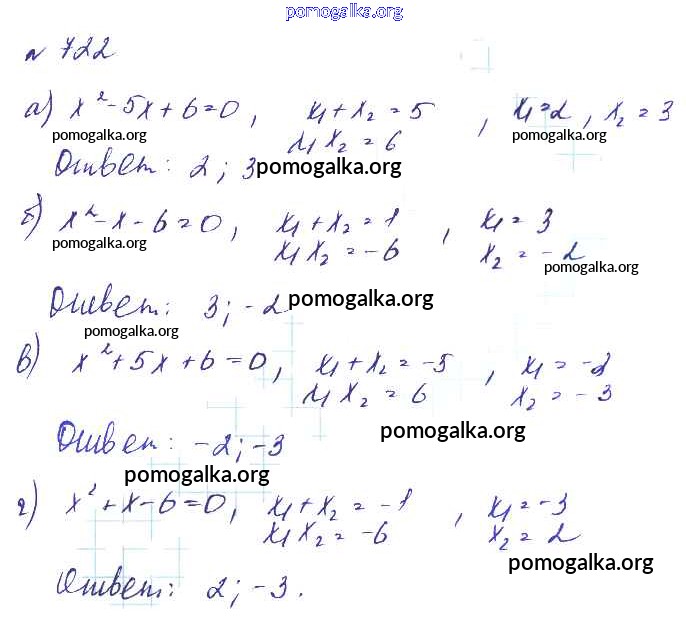 pomogalka.org
№ 722
а) x² - 5x + 6 = 0, x₁ + x₂ = 5
x₁ x₂ = 6, x₁ = 2, x₂ = 3
pomogalka.org pomogalka.org
Ответ: 2; 3 pomogalka.org
б) x² - x - 6 = 0, x₁ + x₂ = 1, x₁ = 3
pomogalka.org x₁ x₂ = -6 x₂ = -2
pomogalka.org
Ответ: 3; -2 pomogalka.org
pomogalka.org
в) x² + 5x + 6 = 0, x₁ + x₂ = -5, x₁ = -2
x₁ x₂ = 6 x₂ = -3
Ответ: -2; -3 pomogalka.org
pomogalka.org
г) x² + x - 6 = 0, x₁ + x₂ = -1, x₁ = -3
x₁ x₂ = -6 x₂ = 2
pomogalka.org
Ответ: 2; -3.